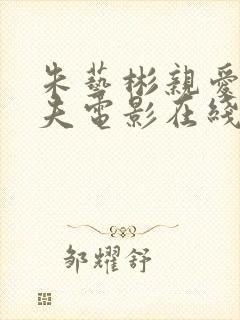 朱藝彬親愛
夫電影在綫
邹耀舒